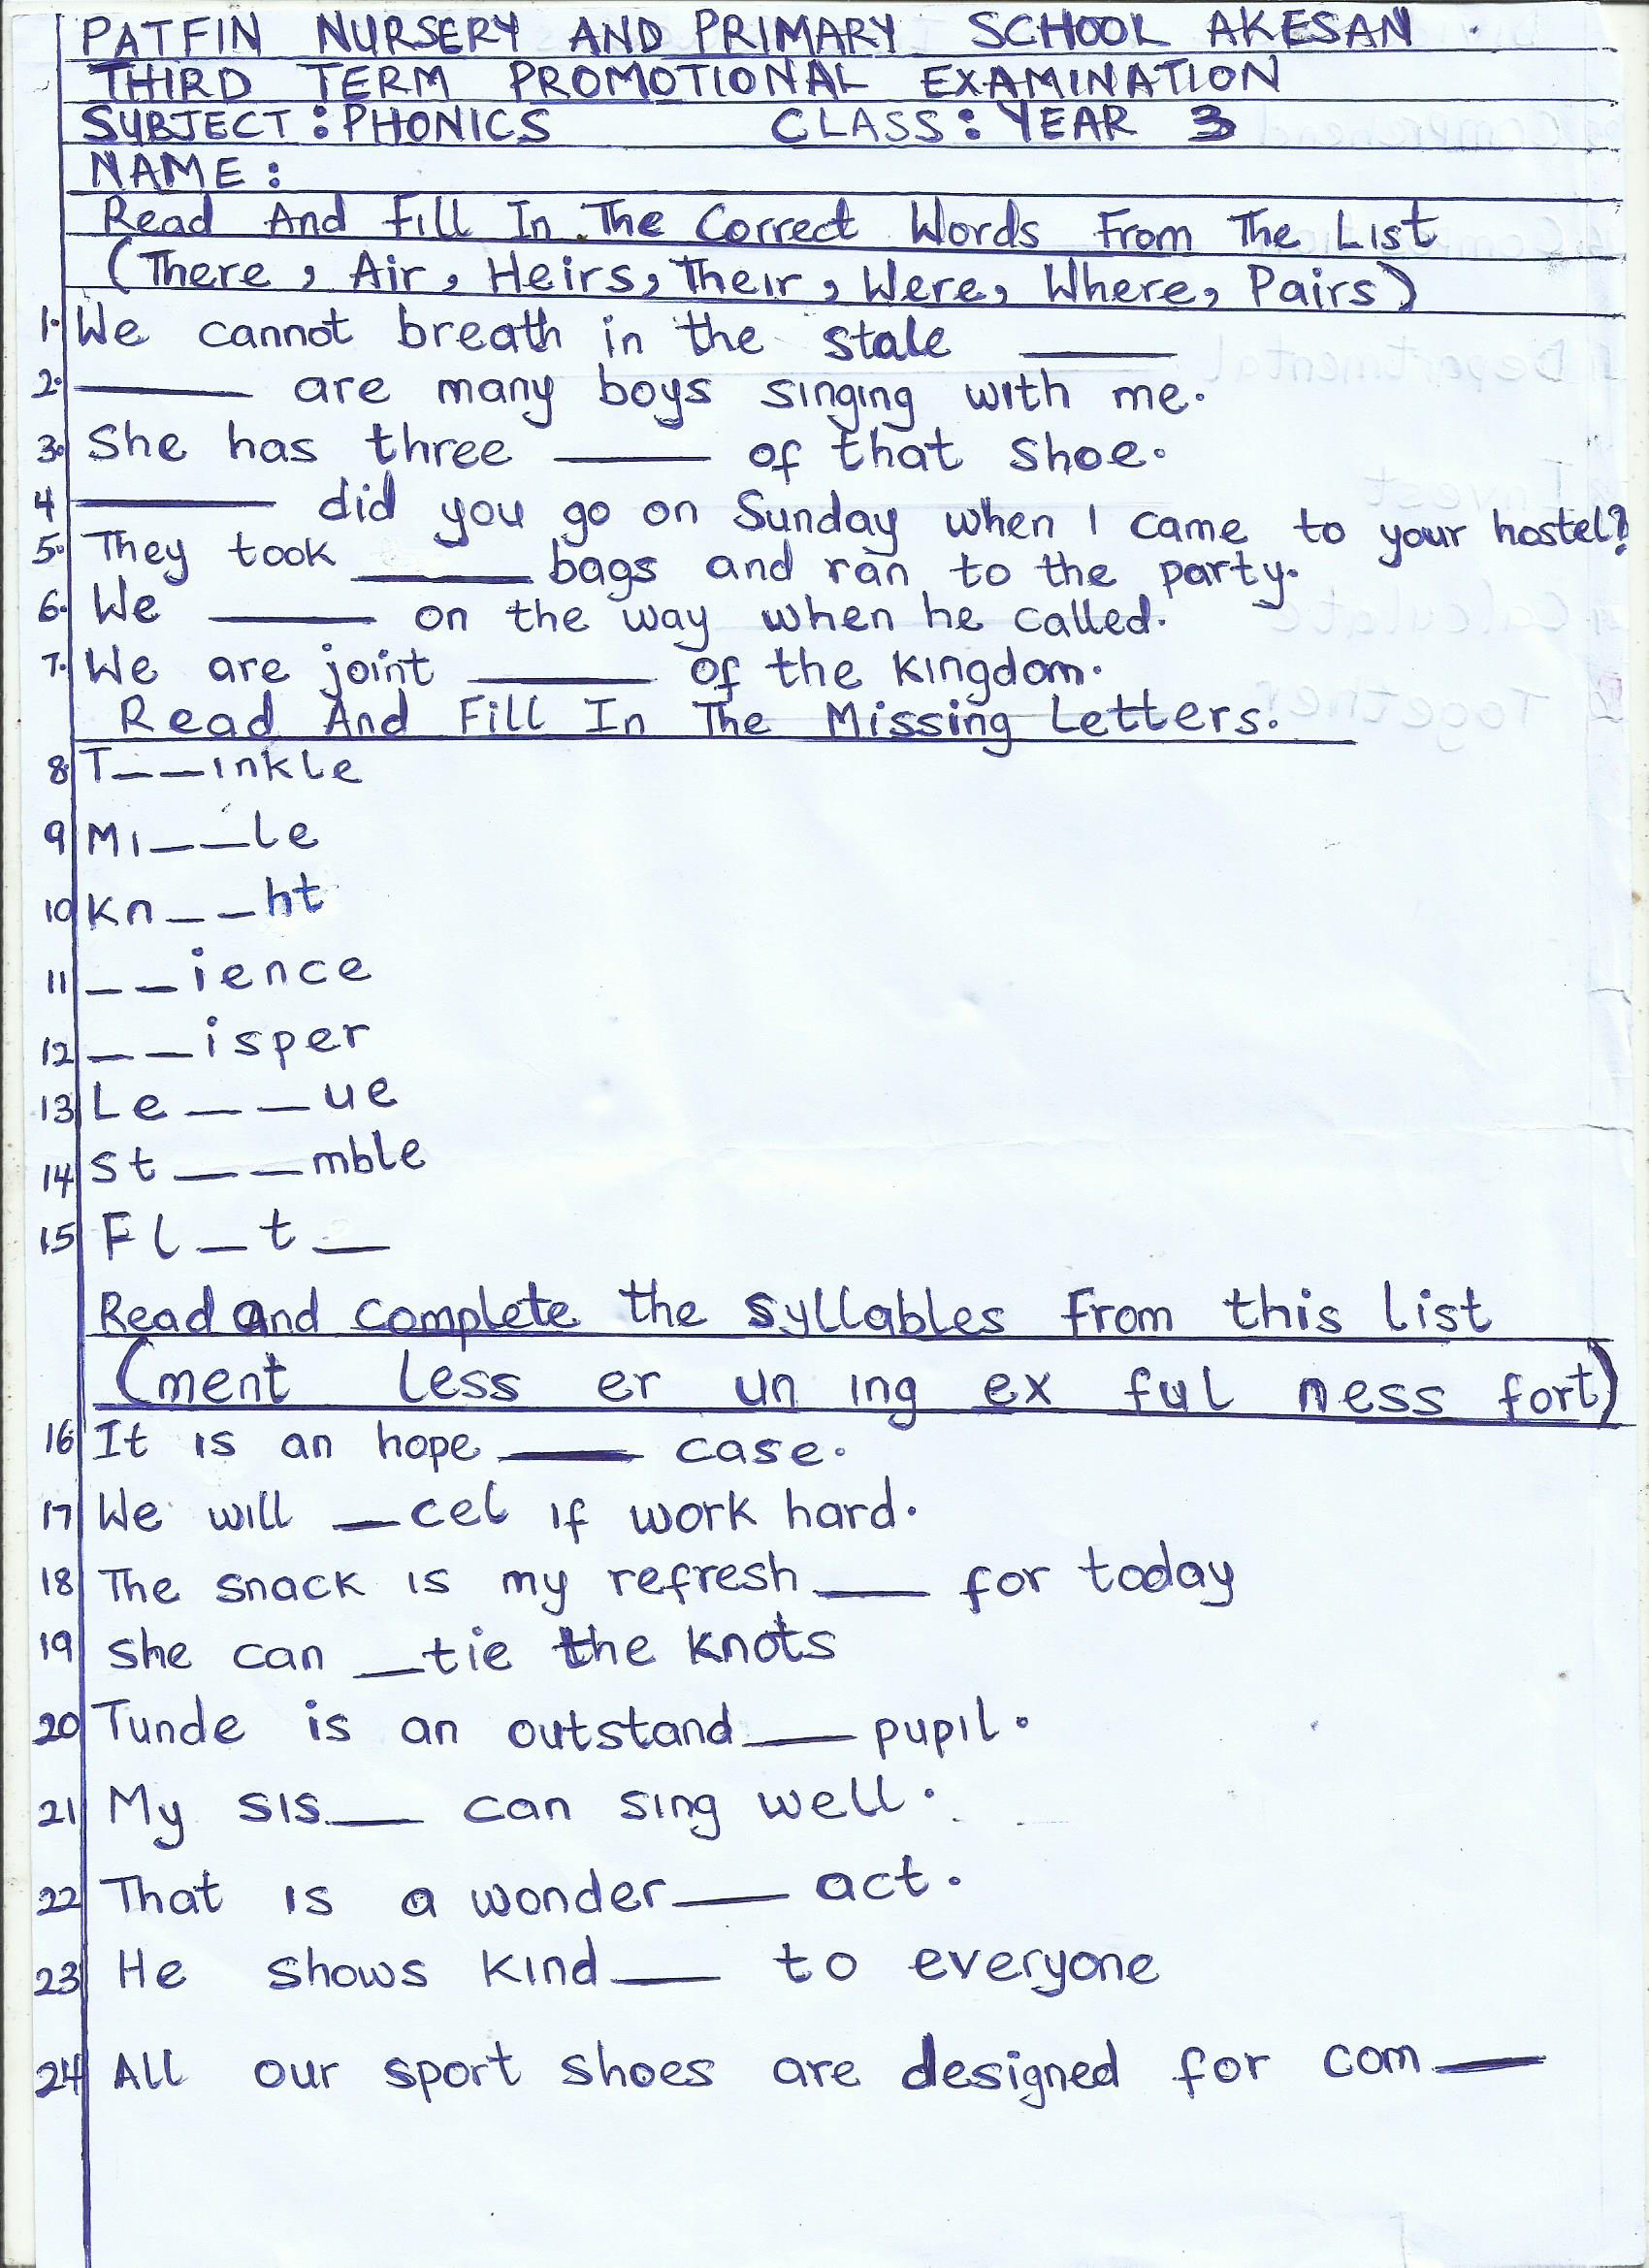 PATFIN NURSERY AND PRIMARY SCHOOL AKESAN
THIRD TERM PROMOTIONAL EXAMINATION
SUBJECT: PHONICS CLASS: YEAR 3
NAME:
Read And Fill In The Correct Words From The List
(There, Air, Heirs, Their, Were, Where, Pairs)
1. We cannot breath in the stale ____
2. ____ are many boys singing with me.
3. She has three ____ of that shoe.
4 ____ did you go on Sunday when I came to your hostel?
5. They took ____ bags and ran to the party.
6. We ____ on the way when he called.
7. We are joint ____ of the kingdom.
Read And Fill In The Missing Letters.
8. T__inkle
9 Mi__le
10 Kn__ht
11 __ience
12 __isper
13 Le__ue
14 St__mble
15 Fl_t_
Read and complete the syllables from this list
(ment less er un ing ex ful ness fort)
16 It is an hope ____ case.
17 We will _cel if work hard.
18 The snack is my refresh____ for today
19 she can _tie the knots
20 Tunde is an outstand____ pupil.
21 My sis____ can sing well.
22 That is a wonder____ act.
23 He shows kind____ to everyone
24 All our sport shoes are designed for com____